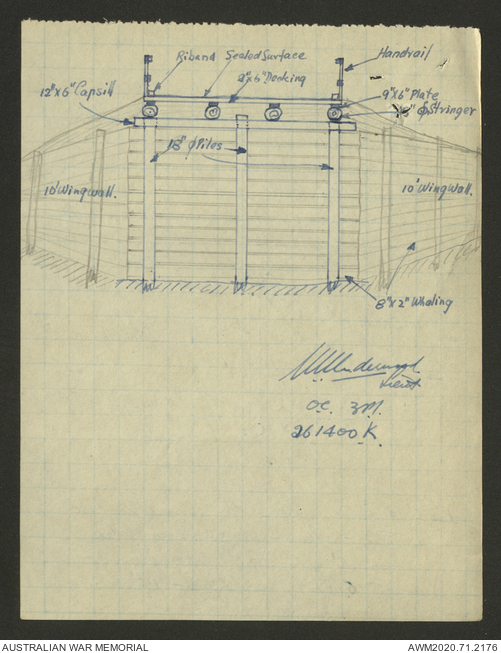 Riband Sealed Surface Handrail
9"x6" Decking
12"x6" Capsill 9"x6" Plate
" ϕ Stringer
18" ϕ Piles
10' Wingwall. 10' Wingwall.
8"x2" Whaling
Lieut
OC. 3Pl.
261400K.
AUSTRALIAN WAR MEMORIAL AWM2020.71.2176